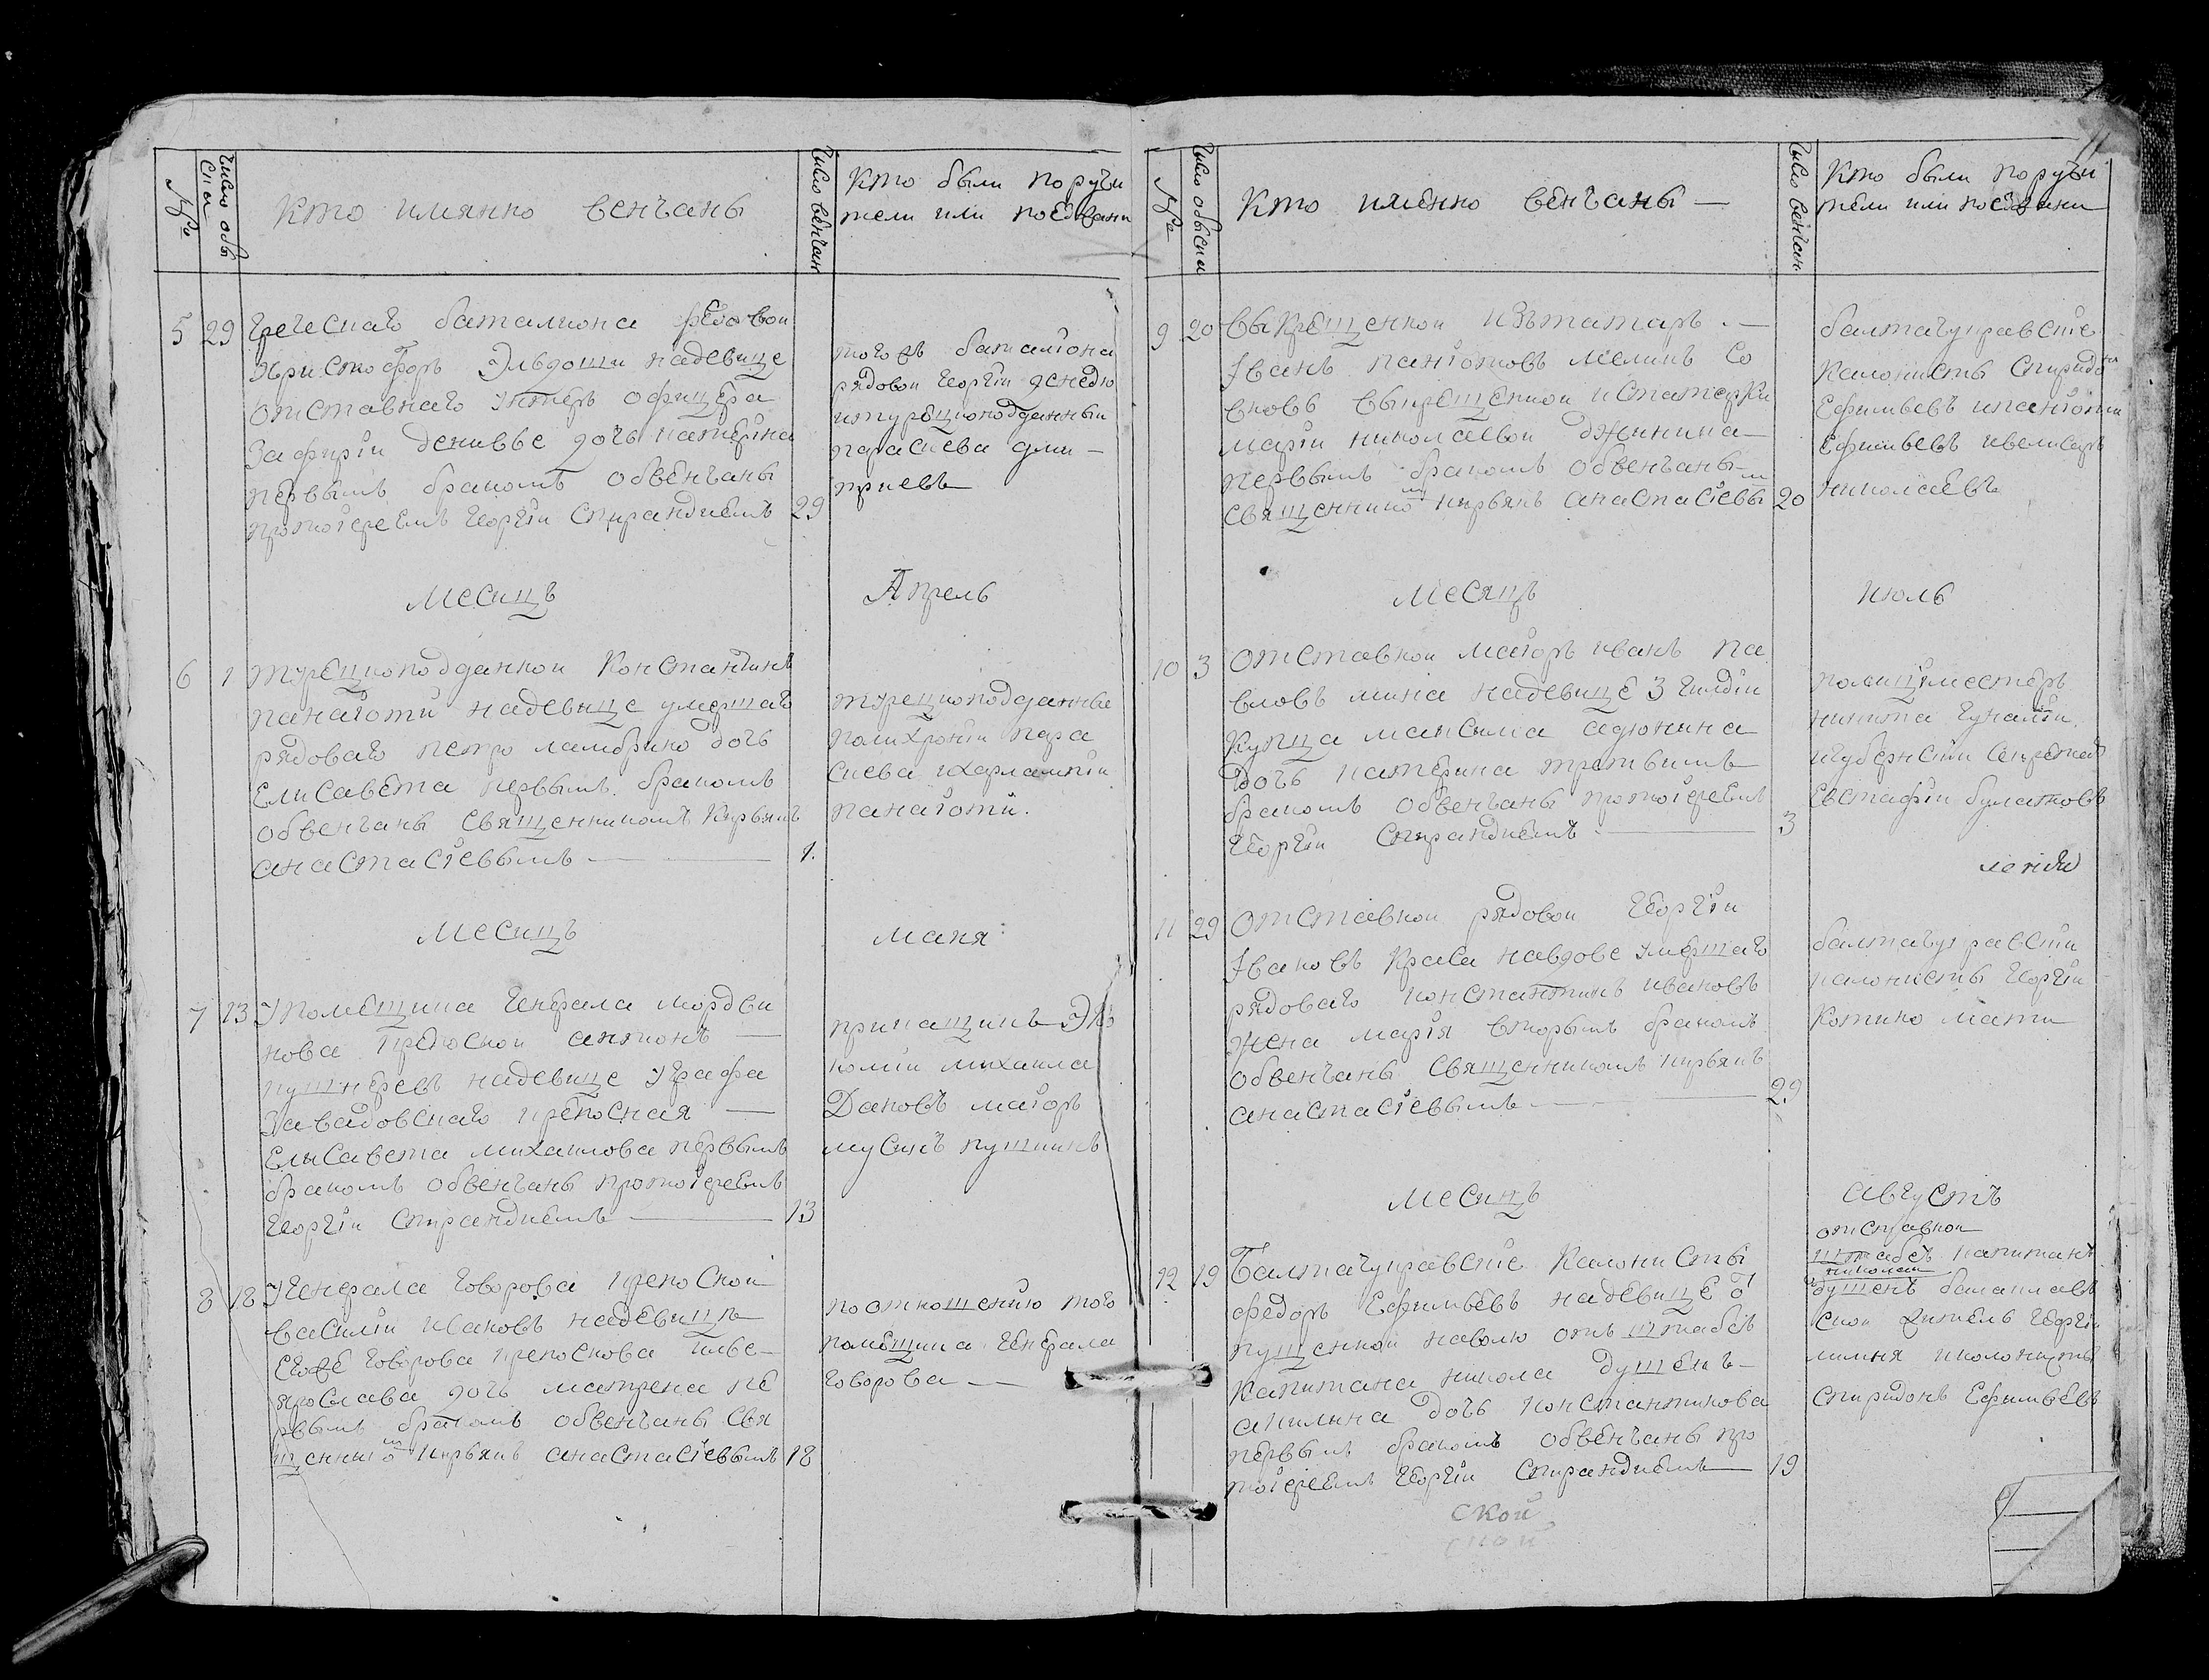 №
Число обы
ска
Кто имянно венчаны
Число венчан
Кто были поручи
тели или поезжани
5 29 Греческаго баталиона рядовои
Христофоръ надевице
отставнаго унтеръ офицера
Зафирiи дочь катерина
первымъ бракомъ обвенчаны
протоиереемъ Георгiи Спирандиемъ 29
тогожъ баталiона
рядовои Георгiи
итурецкоподданныи
параскева дми
триевъ
Месяцъ Апрель
6 1 турецкоподданнои Константинъ
панаiоти надевице умершаго
рядоваго петро ламбрино дочь
Елисавета первымъ бракомъ
обвенчаны священникомъ Кирьякъ
анастасiевымъ 1.
турецкоподданные
полихронiи пара
скева ихарлампiи
панаiоти.
Месяцъ маия
7 13 Упомещика Генерала мордви
нова крепоснои антонъ
надевице Уграфа
Завадовскаго крепосная
Елисавета михаилова первымъ
бракомъ обвенчаны протоиереемъ
Георгiи Спирандиемъ 13
прикащикъ Эко
номiи михаила
Даковъ маiоръ
мусинъ пушкинъ
8 18 Угенерала Говорова крепоснои
василiи ивановъ надевицъ
Егоже Говорова крепоснова
дочь матрена пе
рвымъ бракомъ обвенчаны свя
щеннико мъ кирьякъ анастасiевымъ 18
по отношению того
помещика Генерала
Говорова
№
Число обыска
Кто имянно венчаны
Число венчан.
Кто были поручи
тели или поезжани
9 20 выкрещеннои изътатаръ.
Iванъ панiотовъ мелинъ со
вновь выкрещеннои истатарки
марiи николаевои
первымъ бракомъ обвенчаны
священнико мъ кирьякъ анастасiевы мъ 20
балтачуправские
калонисты Спиридо нъ
Ефимьевъ ипанiоти
Ефимьевъ ивелисаръ
николаевъ
Месяцъ июль
10 3 отставнои маiоръ иванъ па
вловъ мина надевице 3 гилдiи
купца максима
дочь катерина третьимъ
бракомъ обвенчаны протоиереемъ
Георгiи Спирандиемъ 3
полицiместеръ
никита
игубернскiи секретарь
Евстафiи булатковъ
11 29 Отставнои рядовои Георгiи
Iвановъ Краса навдове умершаго
рядоваго константинъ ивановъ
жена марiя вторымъ бракомъ
обвенчаны священникомъ кирьякъ
анастасiевымъ 29
балтачуправскiи
калонисты Георгiи
Котико мати
Месяцъ августъ
12 19 Балтачуправские Калонисты
федоръ Ефимьевъ надевице о
пущеннои наволю отъ штабсъ
капитана никола душенъ
акилина дочь константинова
первымъ бракомъ обвенчаны про
тоиереемъ Георгiи Спирандиемъ 19
отставнои
штабсъ капитанъ
николаи
душенъ балаклавъ
скои житель Георгiи
иколонистъ
Спиридонъ Ефимьевъ
ской